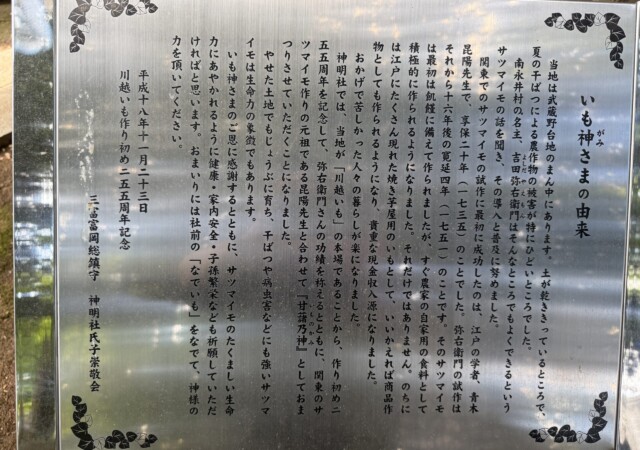 いも神さまの由来
がみ
当地は武蔵野台地のまん中にあります。土が乾ききっているところで、
夏の干ばつによる農作物の被害が特にひどいところでした。
南永井村の名主、吉田弥右衛門はそんなところでもよくできるという
よしだやえもん
サツマイモの話を聞き、その導入と普及に努めました。
関東でのサツマイモの試作に最初に成功したのは、江戸の学者、青木
昆陽先生で、享保二十年（一七三五）のことでした。弥右衛門の試作は
それから十六年後の寛延四年（一七五一）のことです。そのサツマイモ
は最初は飢饉に備えて作られましたが、すぐ農家の自家用の食料として
積極的に作られるようになりました。それだけではありません。のちに
は江戸にたくさん現れた焼き芋屋用のいもとして、いいかえれば商品作
物としても作られるようになり、貴重な現金収入源になりました。
おかげで苦しかった人々の暮らしが楽になりました。
神明社では、当地が「川越いも」の本場であることから、作り初め二
五五周年を記念して、弥右衛門さんの功績を称えるとともに、関東のサ
ツマイモ作りの元祖である昆陽先生と合わせて『甘藷乃神』としておま
いものかみ
つりさせていただくことになりました。
やせた土地でもじょうぶに育ち、干ばつや病虫害などにも強いサツマ
イモは生命力の象徴でもあります。
いも神さまのご恩に感謝するとともに、サツマイモのたくましい生命
力にあやかれるように健康・家内安全・子孫繁栄なども祈願していただ
ければと思います。おまいりには社前の「なでいも」をなでて、神様の
力を頂いてください。
平成十八年十一月二十三日
川越いも作り初め二五五周年記念
三富富岡総鎮守　神明社氏子崇敬会